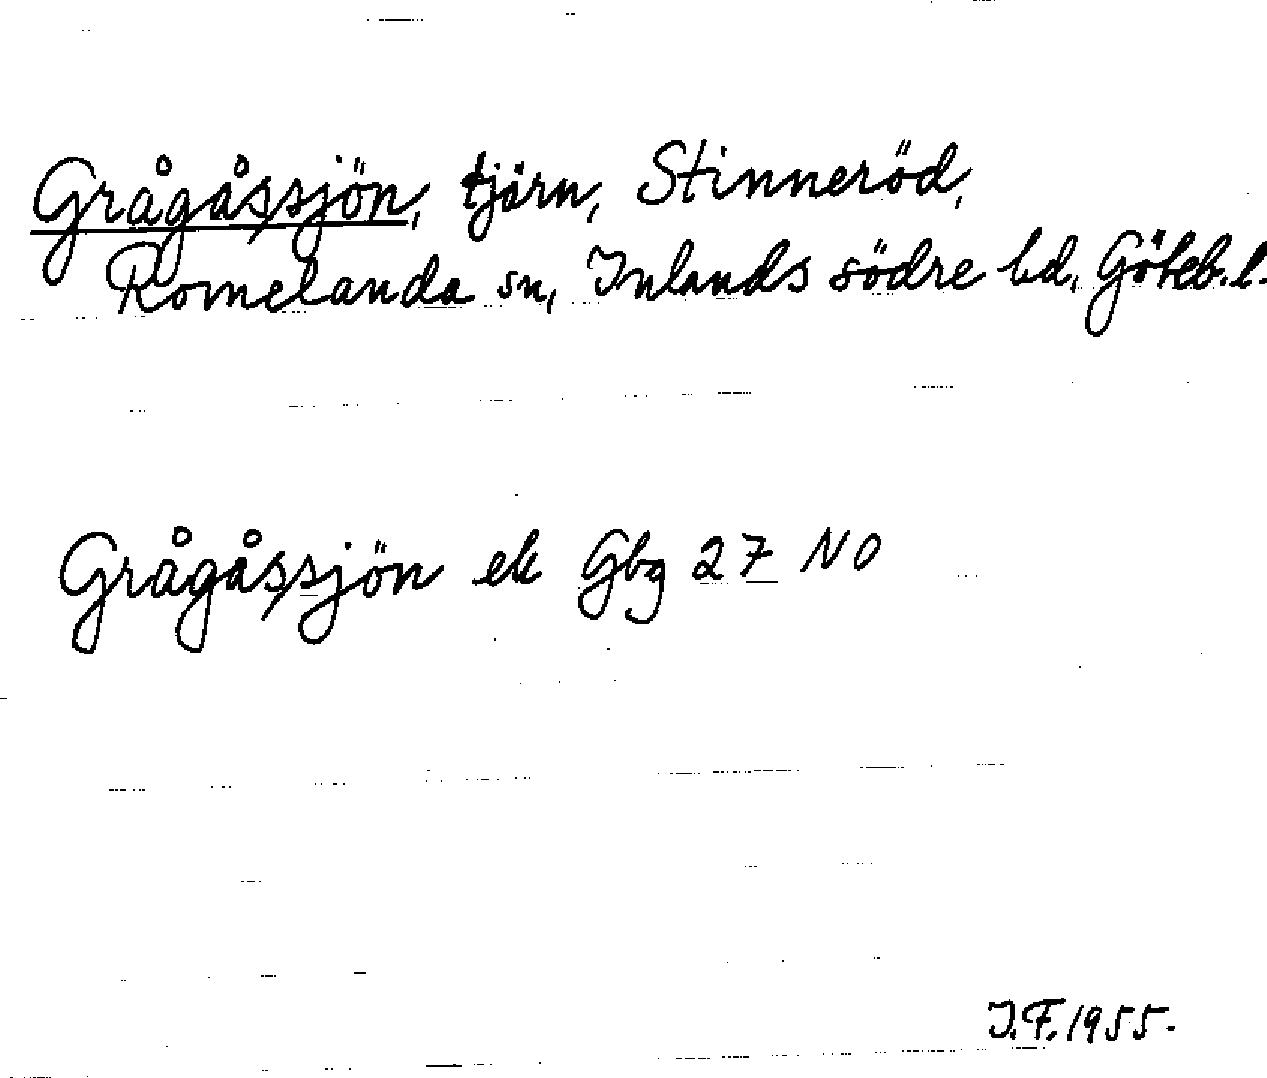 Grågåssjön, tjärn, Stinneröd,
Romelanda sn, Inlands södre hd, Göteb.l.
Grågåssjön ek Gbg 27 NO
I.F. 1955.